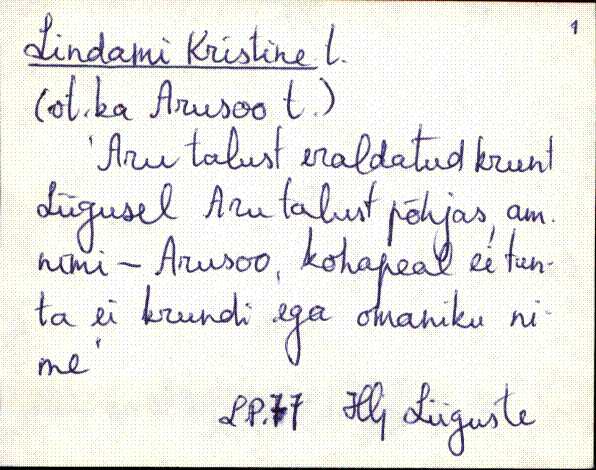 1
Lindami Kristine t.
(vt. ka Arusoo t.)
'Aru talust eraldatud krunt
Liigusel Aru talust põhjas, am.
nimi – Arusoo, kohapeal ei tun-
ta ei krundi ega omaniku ni-
me'
LP.77 Hlj Liiguste